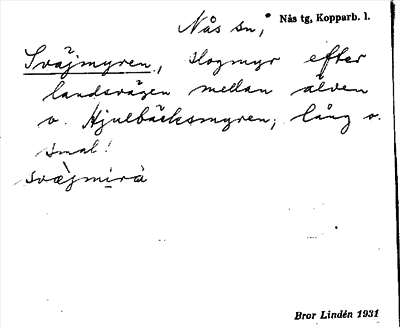 Nås sn, Nås tg, Kopparb. l.
Sväjmyren, skogmyr efter
landsvägen mellan älven
o. Hjulbäcksmyren; lång o.
smal!
svæ̀jmirà
Bror Lindén 1931